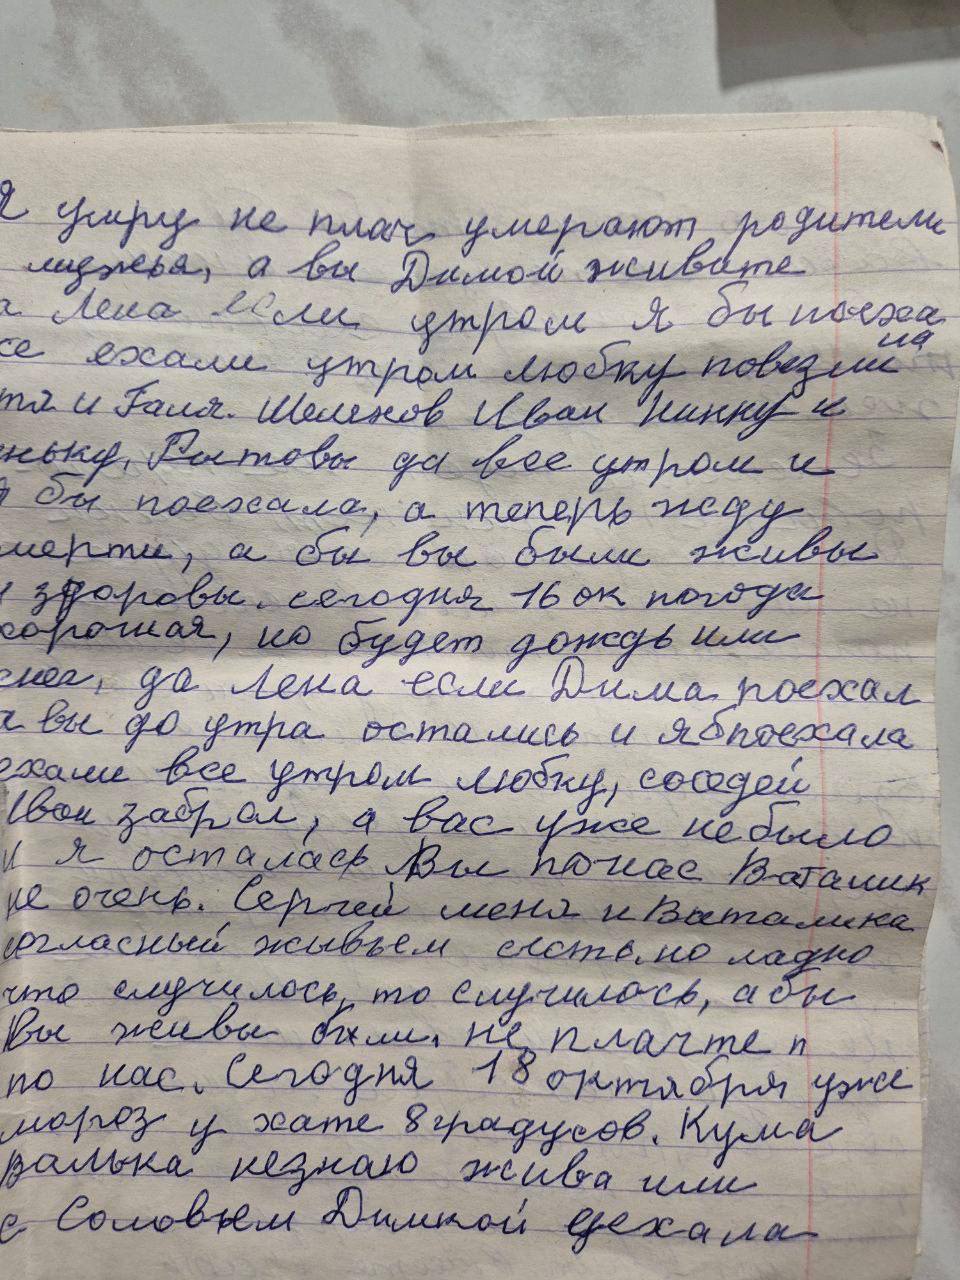 Я умру не плач умерают родители
лиджья, а вы Димой живите
а Лена если утром я бы поеха
се ехали утром Любку повезли на
тя и Галя. Шелехов Иван Нинку и
ньку, Рытовы да все утром и
я бы поехала, а теперь жду
мерти, а бы вы были живы
и здоровы. сегодня 16 ок погода
хорошая, но будет дождь или
снег, да Лена если Дима поехал
а вы до утра остались и я б поехала
ехали все утром Любку, соседей
Иван забрал, а вас уже не было
и я осталась Вы по нас Ваталик
не очень. Сергей меня и Ваталика
согласный жывьем систь но ладно
что случилось, то случилось, абы
Вы живы были. не плачте п
по нас. Сегодня 18 октября уже
мороз у хате 8 градусов. Кума
валька незнаю жива или
с Соловьем Димкой уехала